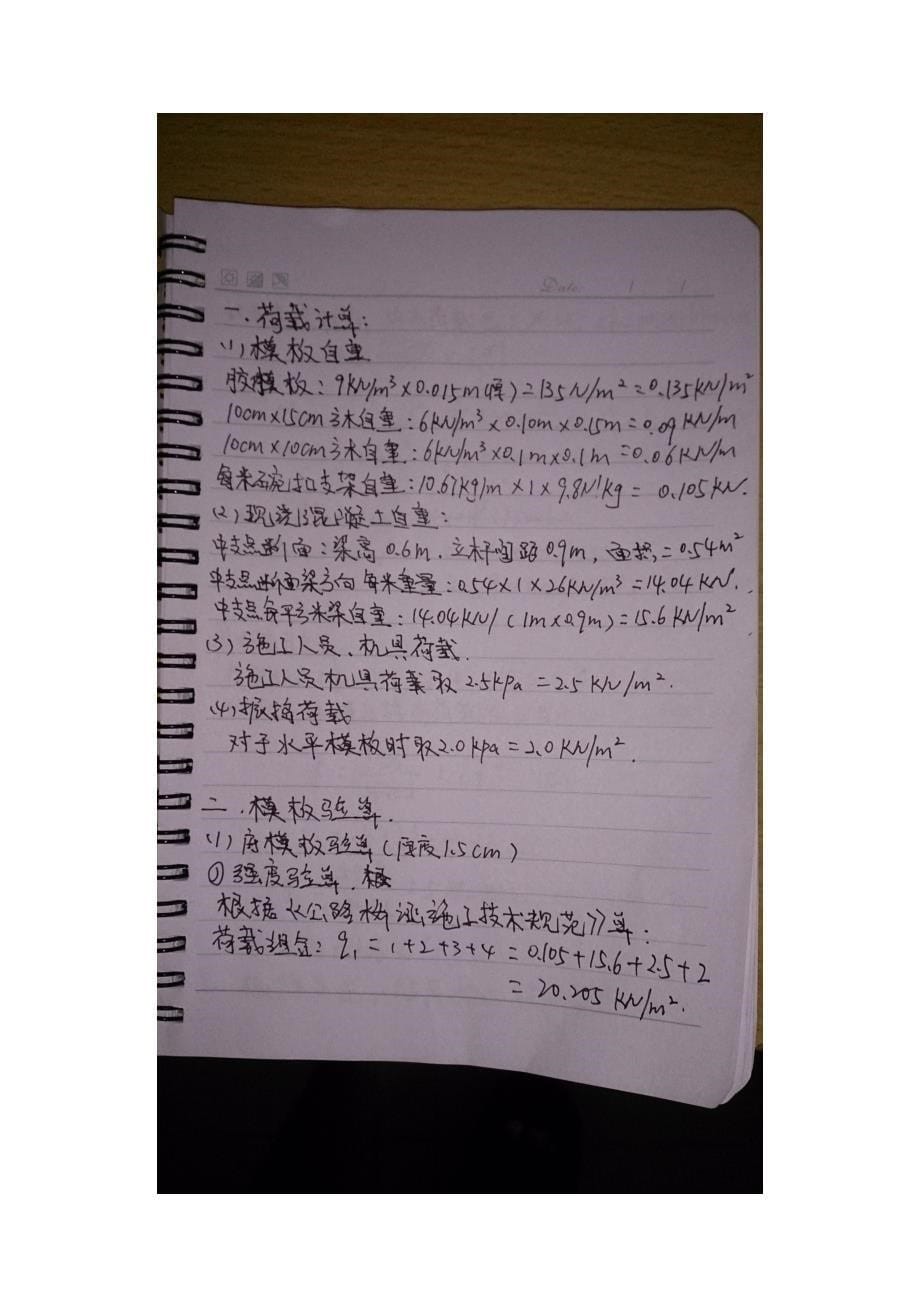 Date / /
一.荷载计算:
(1)模板自重
胶模板:9kN/m³×0.015m(厚)=135N/m²=0.135kN/m²
10cm×15cm方木自重:6kN/m³×0.10m×0.15m=0.09kN/m
10cm×10cm方木自重:6kN/m³×0.1m×0.1m=0.06kN/m
每米碗扣支架自重:10.67kg/m×1×9.8N/kg=0.105kN.
(2)现浇砼混凝土自重:
中支点断面:梁高0.6m,立杆间距0.9m,面积=0.54m²
中支点断面梁方向每米重量:0.54×1×26kN/m³=14.04kN.
中支点每平方米梁自重:14.04kN/(1m×0.9m)=15.6kN/m²
(3)施工人员、机具荷载.
施工人员机具荷载取2.5kpa=2.5kN/m².
(4)振捣荷载
对于水平模板时取2.0kpa=2.0kN/m².
二.模板验算.
(1)底模板验算(厚度1.5cm)
①强度验算.
根据《公路桥涵施工技术规范》算:
荷载组合:q₁=1+2+3+4=0.105+15.6+2.5+2
=20.205kN/m².